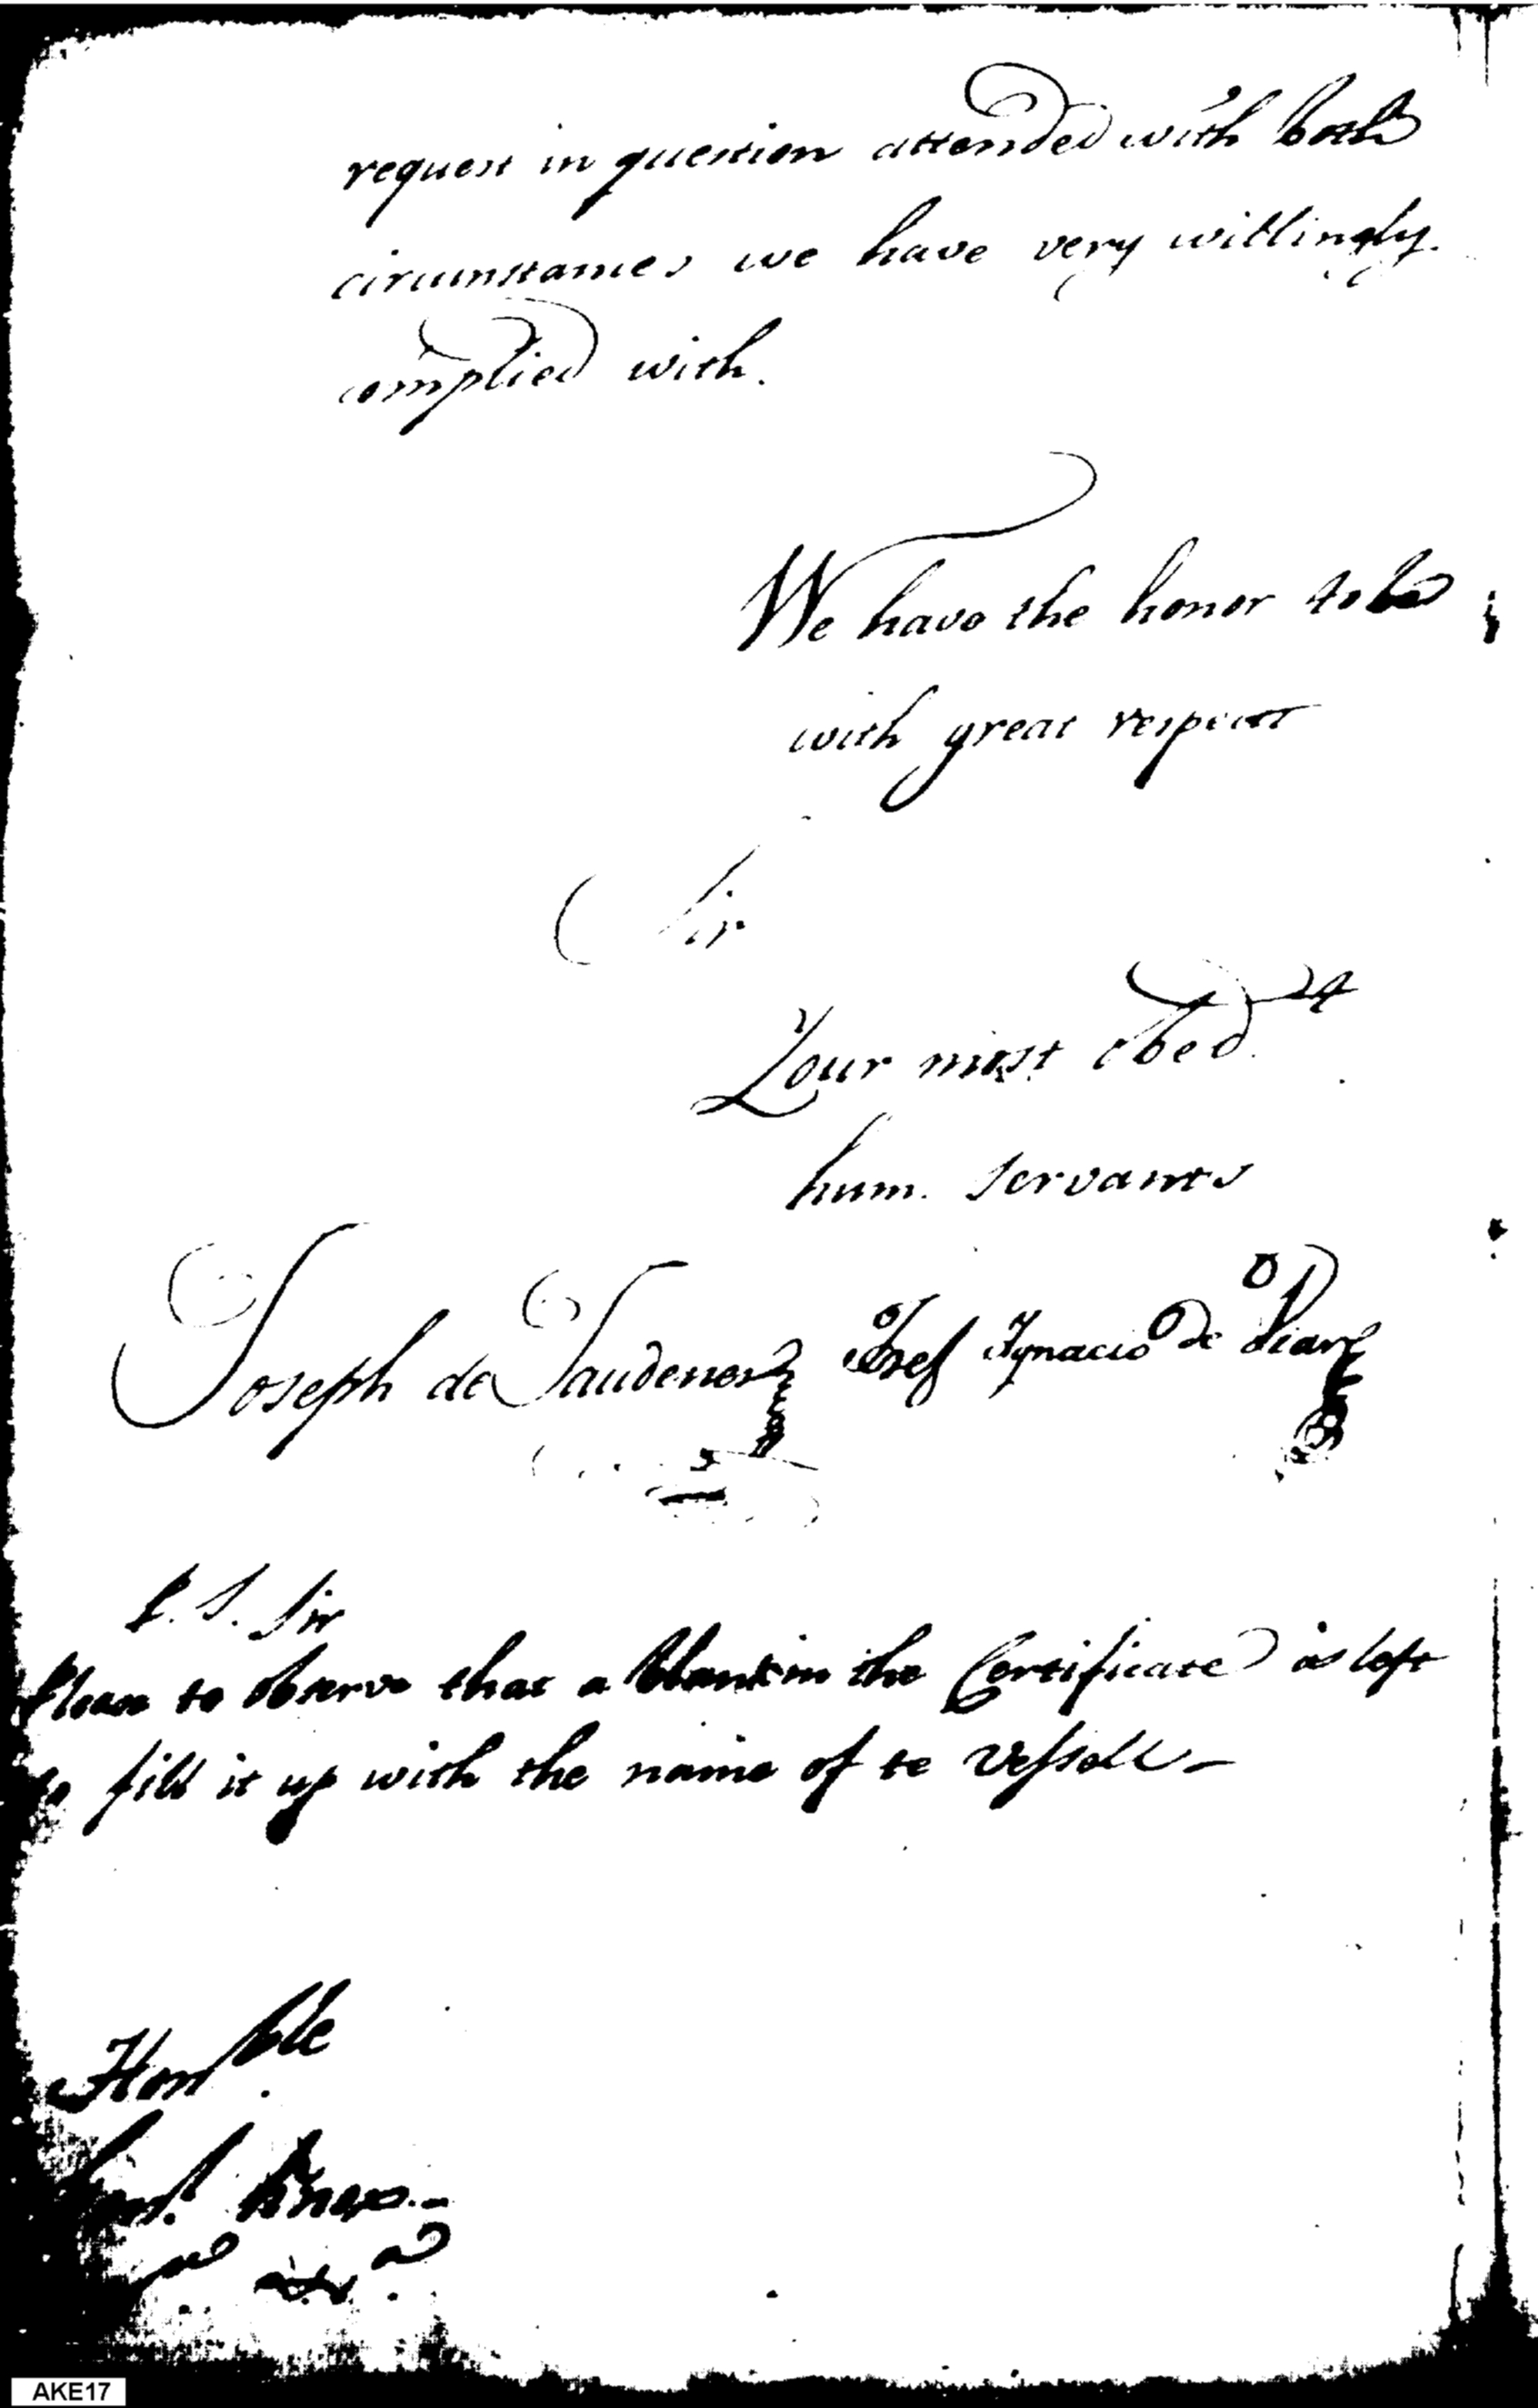 request in question attended with both
circumstances we have very willingly
complied with.
We have the honor to be
with great respect
Sir
Your most obed.nt
hum. servants
Joseph de Jaudenes Josef Ignacio de Viar
P. S. Sir
Please to observe that a blank in the Certificate is left
to fill it up with the name of te Vessell –
Honble
Knox –
AKE17